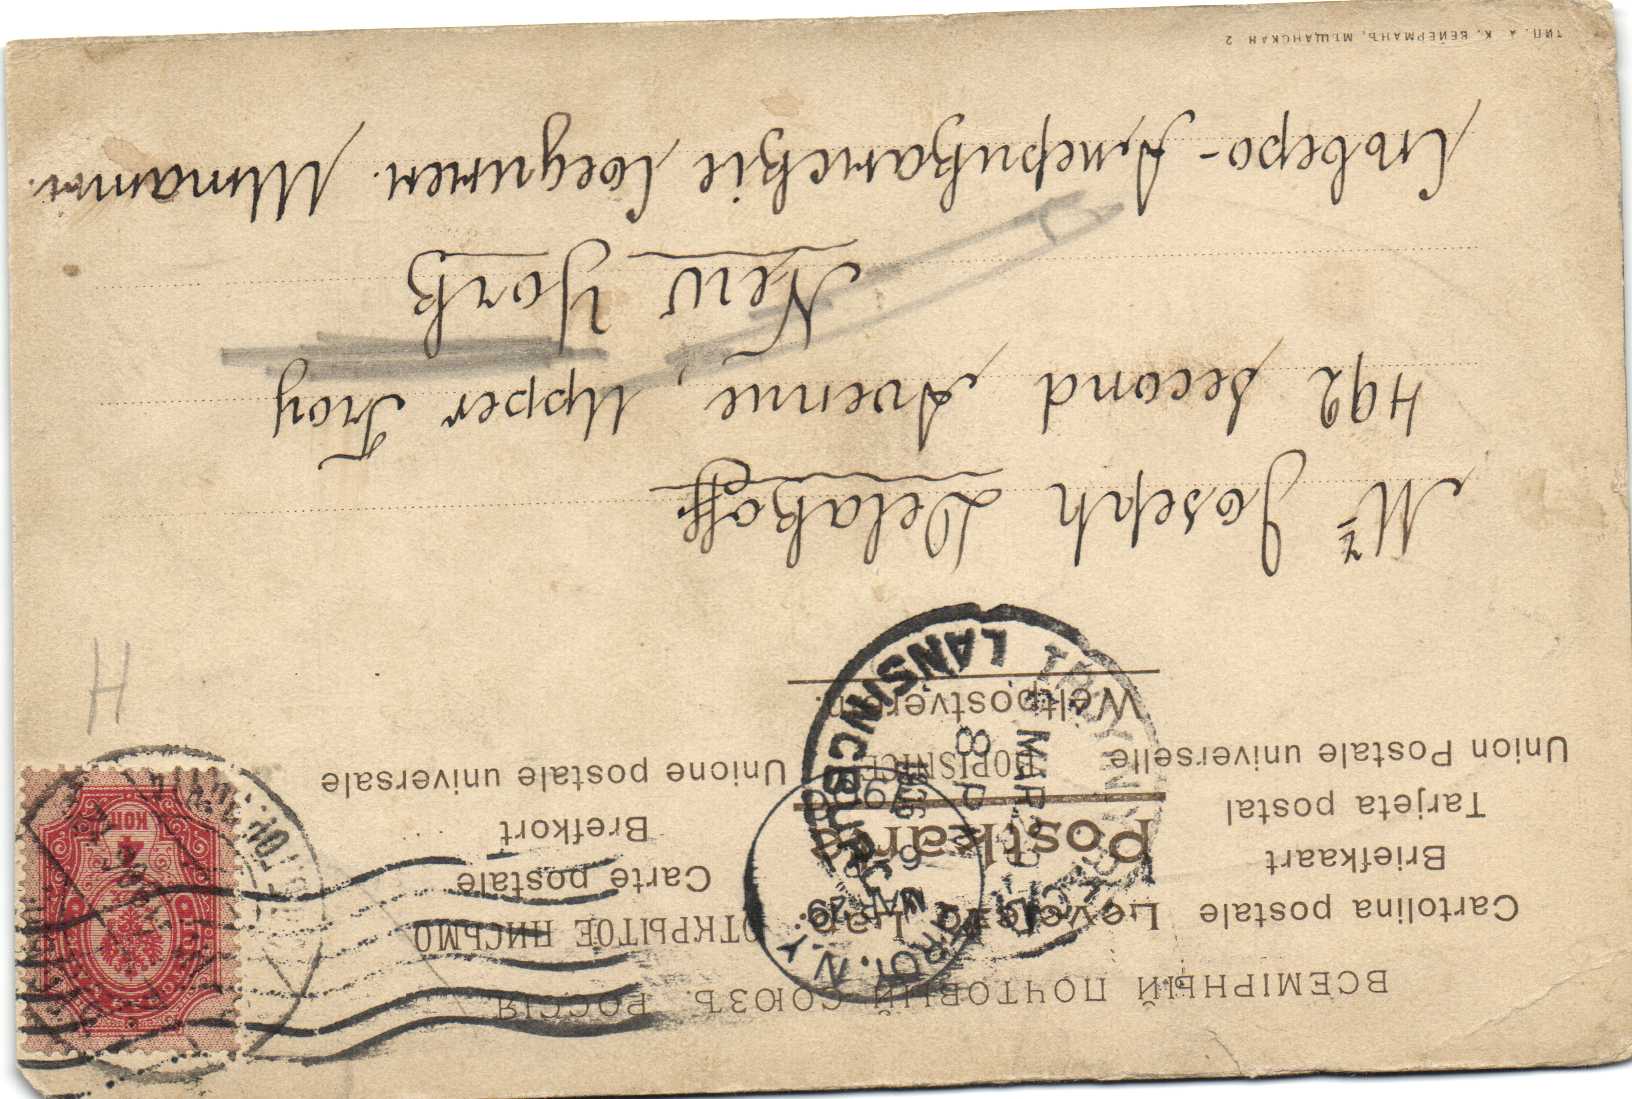 ВСЕМІРНЫЙ ПОЧТОВЫЙ СОЮЗЪ. РОССІЯ
Cartolina postale Levelező-Lap ОТКРЫТОЕ ПИСЬМО
Briefkaart Postkarte Carte postale
Tarjeta postal DOPISNICE Brefkort
Union Postale universelle Weltpostverein. Unione postale universale
TROY, N.Y.
MAR 29
LANSINGBURGH
MAR
8 P
4 КОП
H
Mr Joseph Delakoff
492 Second Avenue, Upper Troy
New York
Сѣверо-Американскіе Соединен. Штаты.
ТИП. А. К. ВЕЙЕРМАНЪ, МѢЩАНСКАЯ 2